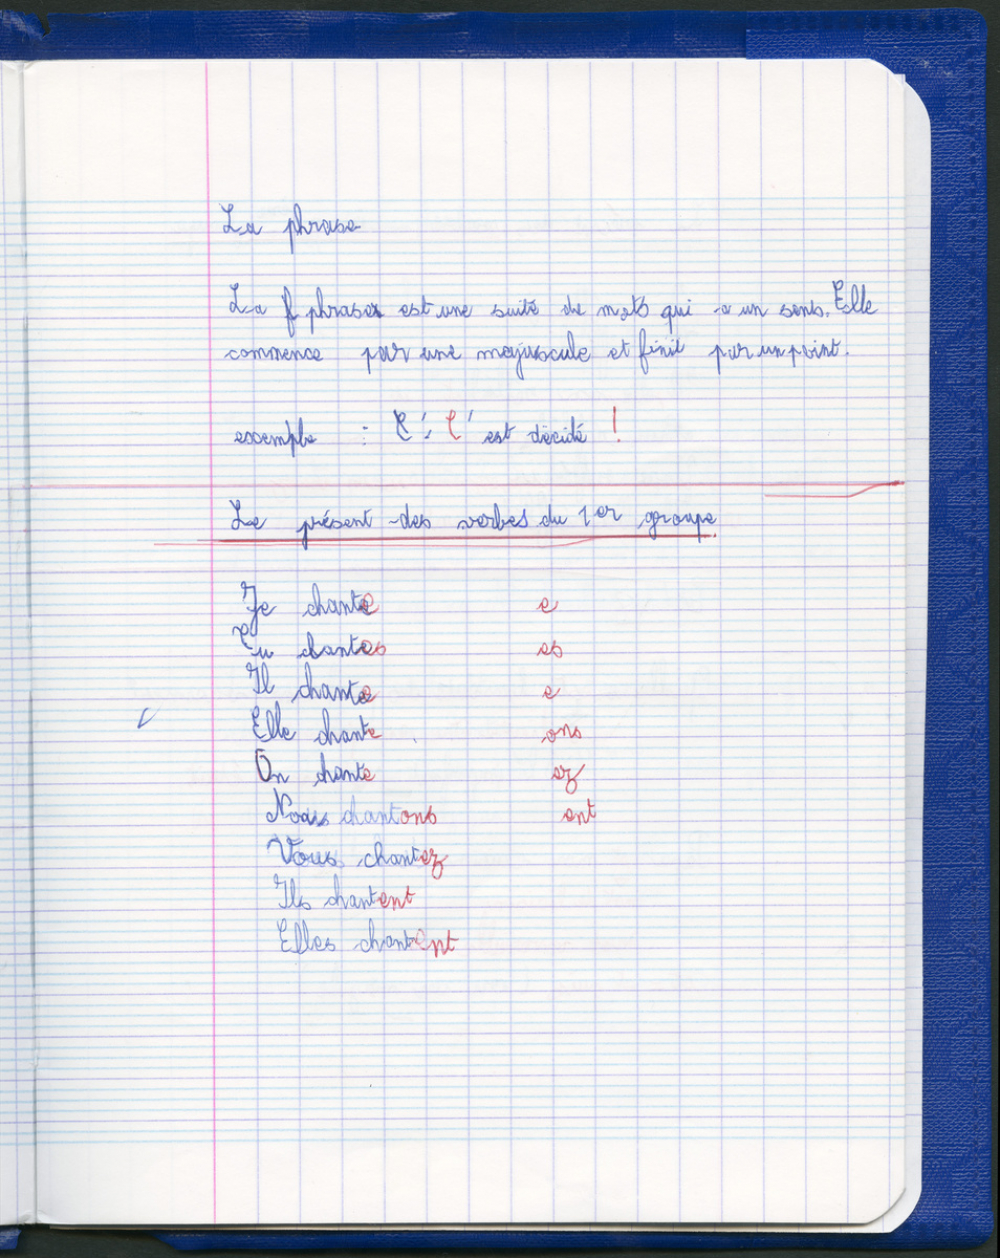 La phrase
La phrase est une suite de mots qui a un sens. Elle
commence par une majuscule et finit par un point.
exemple : C' : C'est décidé !
Le présent des verbes du 1er groupe.
Je chante e
Tu chantes es
Il chante e
Elle chante ons
On chante ez
Nous chantons ent
Vous chantez
Ils chantent
Elles chantent